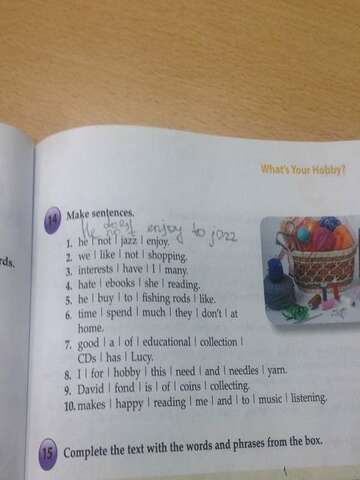 What's Your Hobby?
rds.
14 Make sentences.
He does not enjoy to jazz
1. he | not | jazz | enjoy.
2. we | like | not | shopping.
3. interests | have | I | many.
4. hate | ebooks | she | reading.
5. he | buy | to | fishing rods | like.
6. time | spend | much | they | don't | at
home.
7. good | a | of | educational | collection |
CDs | has | Lucy.
8. I | for | hobby | this | need | and | needles | yarn.
9. David | fond | is | of | coins | collecting.
10. makes | happy | reading | me | and | to | music | listening.
15 Complete the text with the words and phrases from the box.